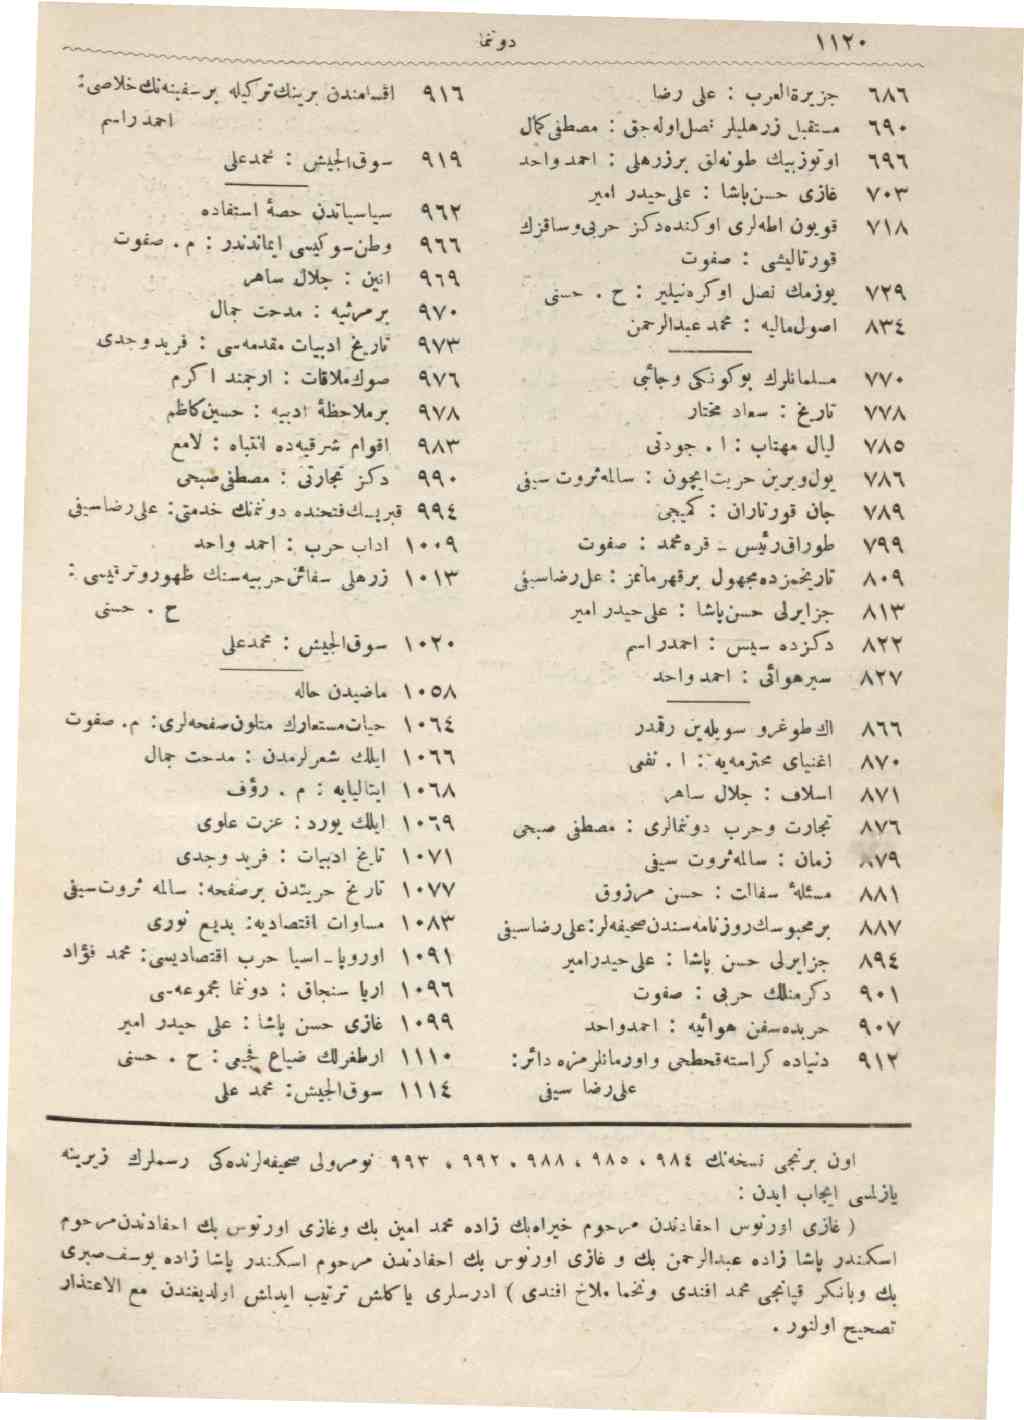 ١١٢٠
دوننما
٦٨٦ جزيرة‌العرب : على رضا
٦٩٠ مستقبل زرهليلر نصل‌اوله‌جق : مصطفى‌كمال
٦٩٦ اوتوزبيك طونه‌لق برزرهلى : احمد واحد
٧٠٣ غازى حسن‌پاشا : على‌حيدر امير
٧١٨ قويون اطه‌لرى اوكنده‌دكز حربى‌وساقزك
قورتاليشى : صفوت
٧٢٩ يوزمك نصل اوكره‌نيلير : ح . حسنى
٨٣٤ اصول‌ماليه : محمد عبدالرحمن
٧٧٠ مسلمانلرك بوكونكى وجائبى
٧٧٨ تاريخ : سعاد مختار
٧٨٥ ليال مهتاب : ا . جودتى
٧٨٦ يول‌ويرين حريت‌ايچون : سالمه‌ثروت سيفى
٧٨٩ جان قورتاران : كميجى
٧٩٩ طوراق‌رئيس ـ قره‌محمد : صفوت
٨٠٩ تاريخمزده‌مجهول برقهرمانمز : على‌رضاسيفى
٨١٣ جزايرلى حسن‌پاشا : على‌حيدر امير
٨٢٢ دكزده سيس : احمدراسم
٨٢٧ سيرهوائى : احمد واحد
٨٦٦ اك‌طوغرو سويله‌ين رقمدر
٨٧٠ اغنياى محترمه‌يه : ا . نفعى
٨٧١ اسلاف : جلال ساهر
٨٧٦ تجارت وحرب دوننمالرى : مصطفى صبحى
٨٧٩ زمان : سالمه‌ثروت سيفى
٨٨١ مسئلهٔ سفالت : حسن مرزوق
٨٨٧ برمحبوسك‌روزنامه‌سندن‌صحيفه‌لر: على‌رضاسيفى
٨٩٤ جزايرلى حسن پاشا : على‌حيدرامير
٩٠١ دكرمنلك حربى : صفوت
٩٠٧ حربده‌سفن هوائيه : احمدواحد
٩١٢ دنياده كراسته‌قحطحى واورمانلرمزه دائر:
على‌رضا سيفى
٩١٦ اقسامندن برينك‌تركيله بر سفينه‌نك‌خلاصى:
احمد راسم
٩١٩ سوق‌الجيش : محمدعلى
٩٦٢ سياسياتدن حصهٔ استفاده
٩٦٦ وطن سوكيسى ايماندندر : م . صفوت
٩٦٩ انين : جلال ساهر
٩٧٠ برمرثيه : مدحت جمال
٩٧٣ تاريخ ادبيات مقدمه‌سى : فريد وجدى
٩٧٦ صوك‌ملاقات : ارجمند اكرم
٩٧٨ برملاحظهٔ ادبيه : حسين‌كاظم
٩٨٣ اقوام شرقيه‌ده انتباه : لامع
٩٩٠ دكز تجارتى : مصطفى‌صبحى
٩٩٤ قبريسك‌فتحنده دوننمنك خدمتى: على‌رضاسيفى
١٠٠٩ اداب حرب : احمد واحد
١٠١٣ زرهلى سفائن‌حربيه‌سنك ظهوروترقيسى :
ح . حسنى
١٠٢٠ سوق‌الجيش : محمدعلى
١٠٥٨ ماضيدن حاله
١٠٦٤ حيات‌مستعارك متلون‌صفحه‌لرى: م. صفوت
١٠٦٦ ايلك شعرلرمدن : مدحت جمال
١٠٦٨ ايتاليايه : م . رؤف
١٠٦٩ ايلك يورد : عزت علوى
١٠٧١ تاريخ ادبيات : فريد وجدى
١٠٧٧ تاريخ حريتدن برصفحه: سالمه ثروت‌سيفى
١٠٨٣ مساوات اقتصاديه: بديع نورى
١٠٩١ اوروپا ـ اسيا حرب اقتصاديسى: محمد فؤاد
١٠٩٦ ارپا سنجاق : دوننما مجموعه‌سى
١٠٩٩ غازى حسن پاشا : على حيدر امير
١١١٠ ارطغرلك ضياع فجيعى : ح . حسنى
١١١٤ سوق‌الجيش: محمد على
اون برنجى نسخه‌نك ٩٨٤ ، ٩٨٥ ، ٩٨٨ ، ٩٩٢ ، ٩٩٣ نومرولى صحيفه‌لرنده‌كى رسملرك زيرينه
يازلمسى ايجاب ايدن :
( غازى اورنوس احفادندن مرحوم خيراه‌بك زاده محمد امين بك وغازى اورنوس بك احفادندن‌مرحوم
اسكندر پاشا زاده عبدالرحمن بك و غازى اورنوس بك احفادندن مرحوم اسكندر پاشا زاده يوسف‌صبرى
بك وبانكر قپانجى محمد افندى ونخما ملاخ افندى ) ادرسلرى ياكلش ترتيب ايدلمش اولديغندن مع الاعتذار
تصحيح اولنور .